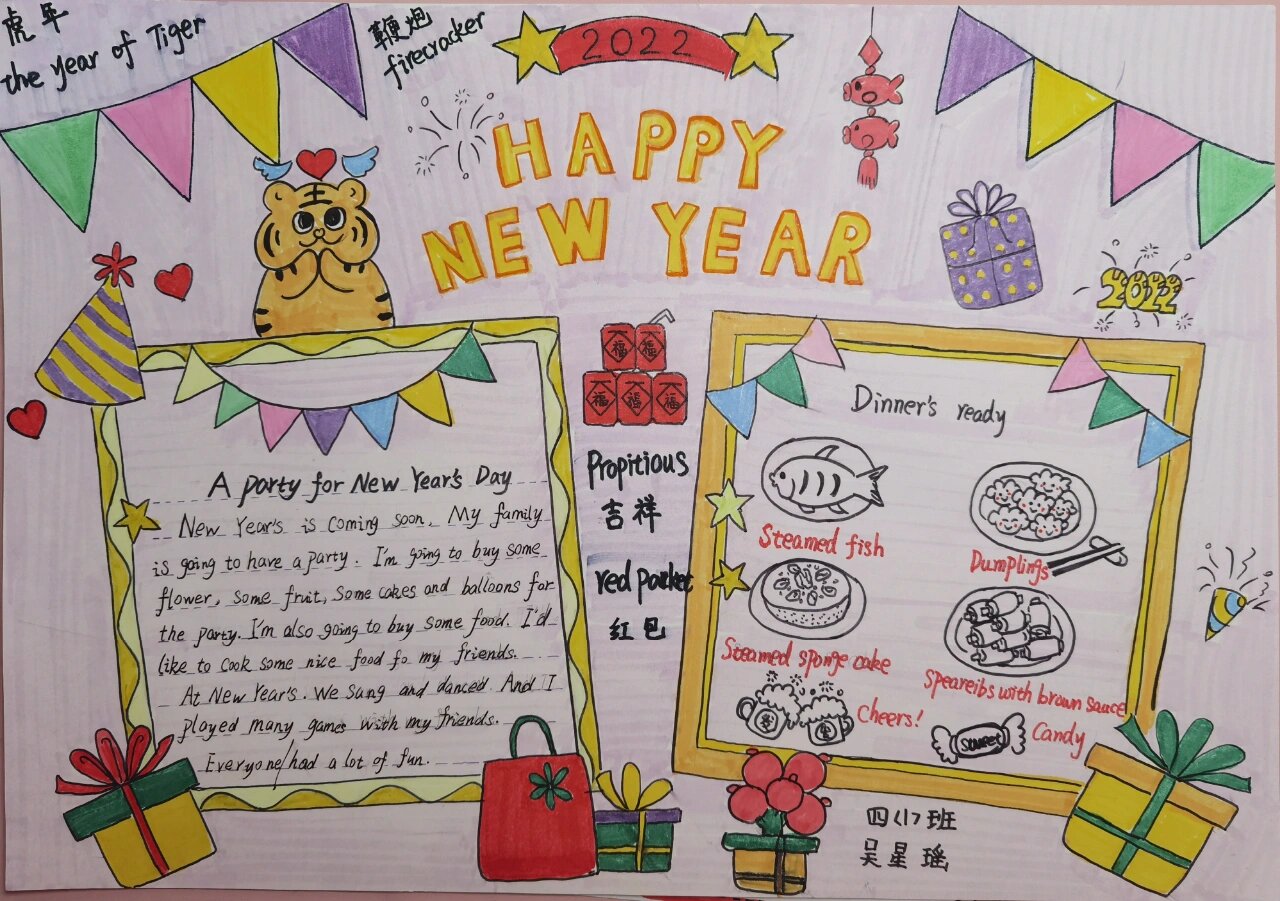 虎年
the year of Tiger
鞭炮
firecracker
2022
HAPPY
NEW YEAR
王
2022
福 福
福 福 福
Propitious
吉祥
red packet
红包
A party for New Year's Day
New Year's is coming soon. My family
is going to have a party. I'm going to buy some
flower, some fruit, some cakes and balloons for
the party. I'm also going to buy some food. I'd
like to cook some nice food fo my friends.
At New Year's. We sang and danced. And I
played many games with my friends.
Everyone/had a lot of fun.
Dinner's ready
Steamed fish
Dumplings
Steamed sponge cake
Speareibs with brown sauce
Cheers!
Sweet
Candy
四(1)班
吴星瑶